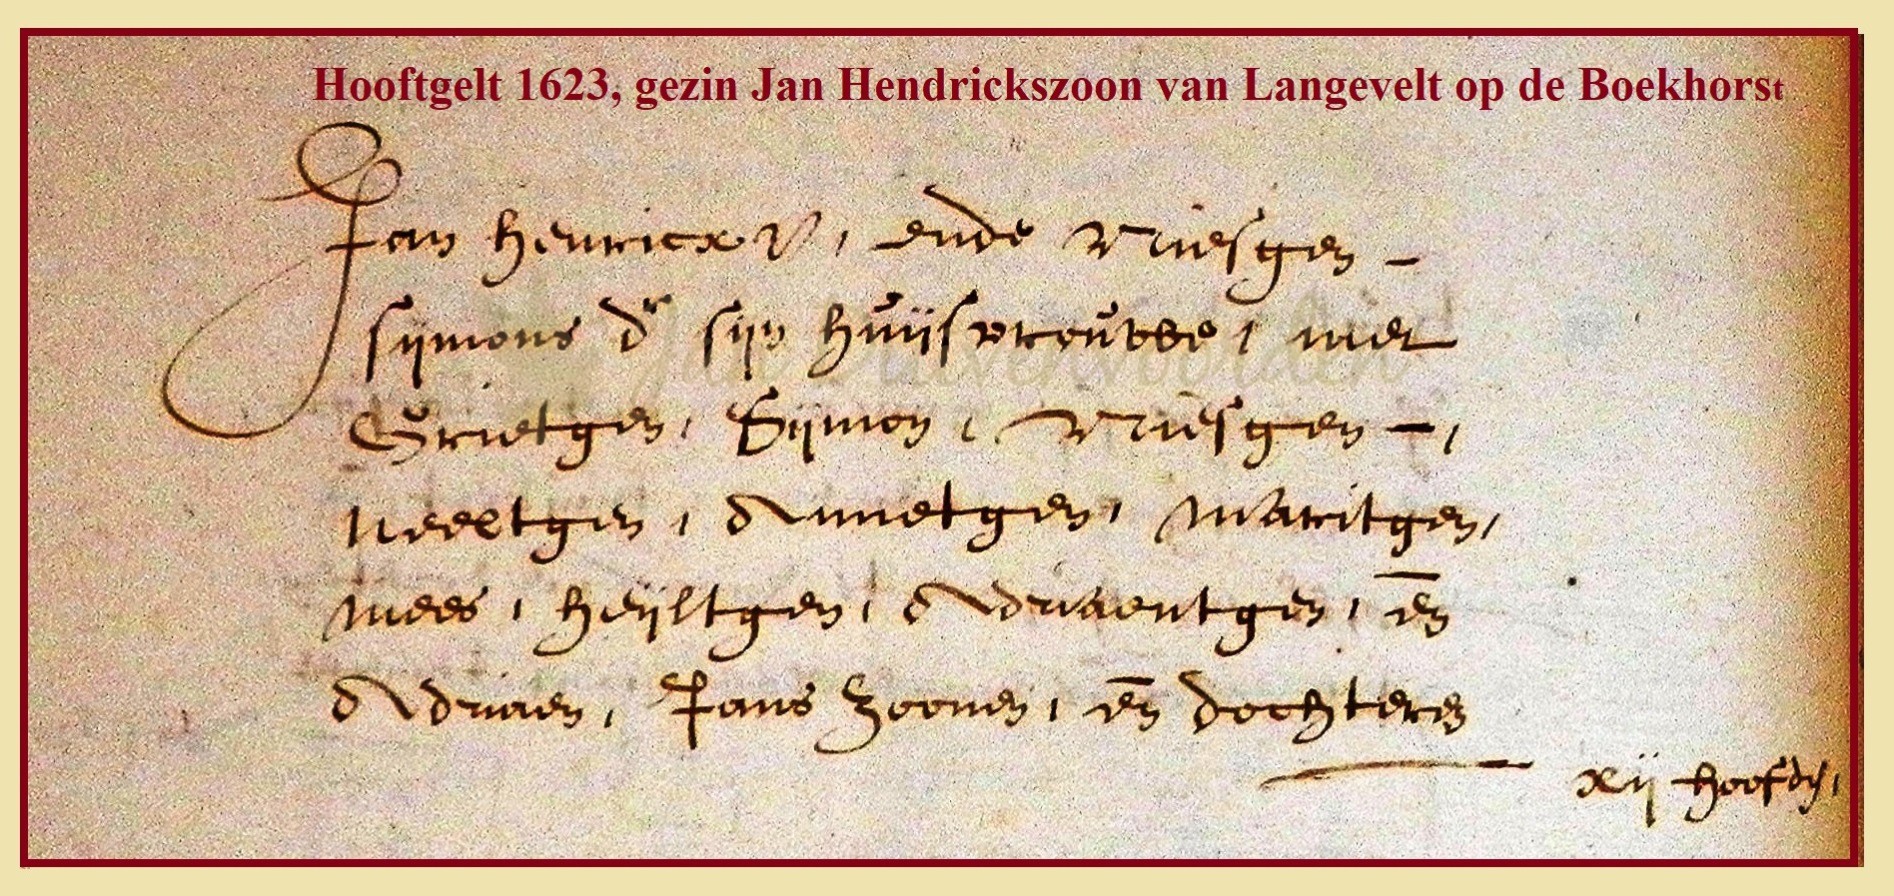 Hooftgelt 1623, gezin Jan Hendrickszoon van Langevelt op de Boekhorst
Jan henricx, ende Vriesgen -
sijmons dr sijn huijsvrouwe, met
Grietgen, Sijmon, Vriesgen -,
Neeltgen, Annetgen, Maritgen,
Mees, heijltgen, Adriaentgen, en̄
Adriaen, Jans zoonen, en̄ dochteren
xij hoofdn,